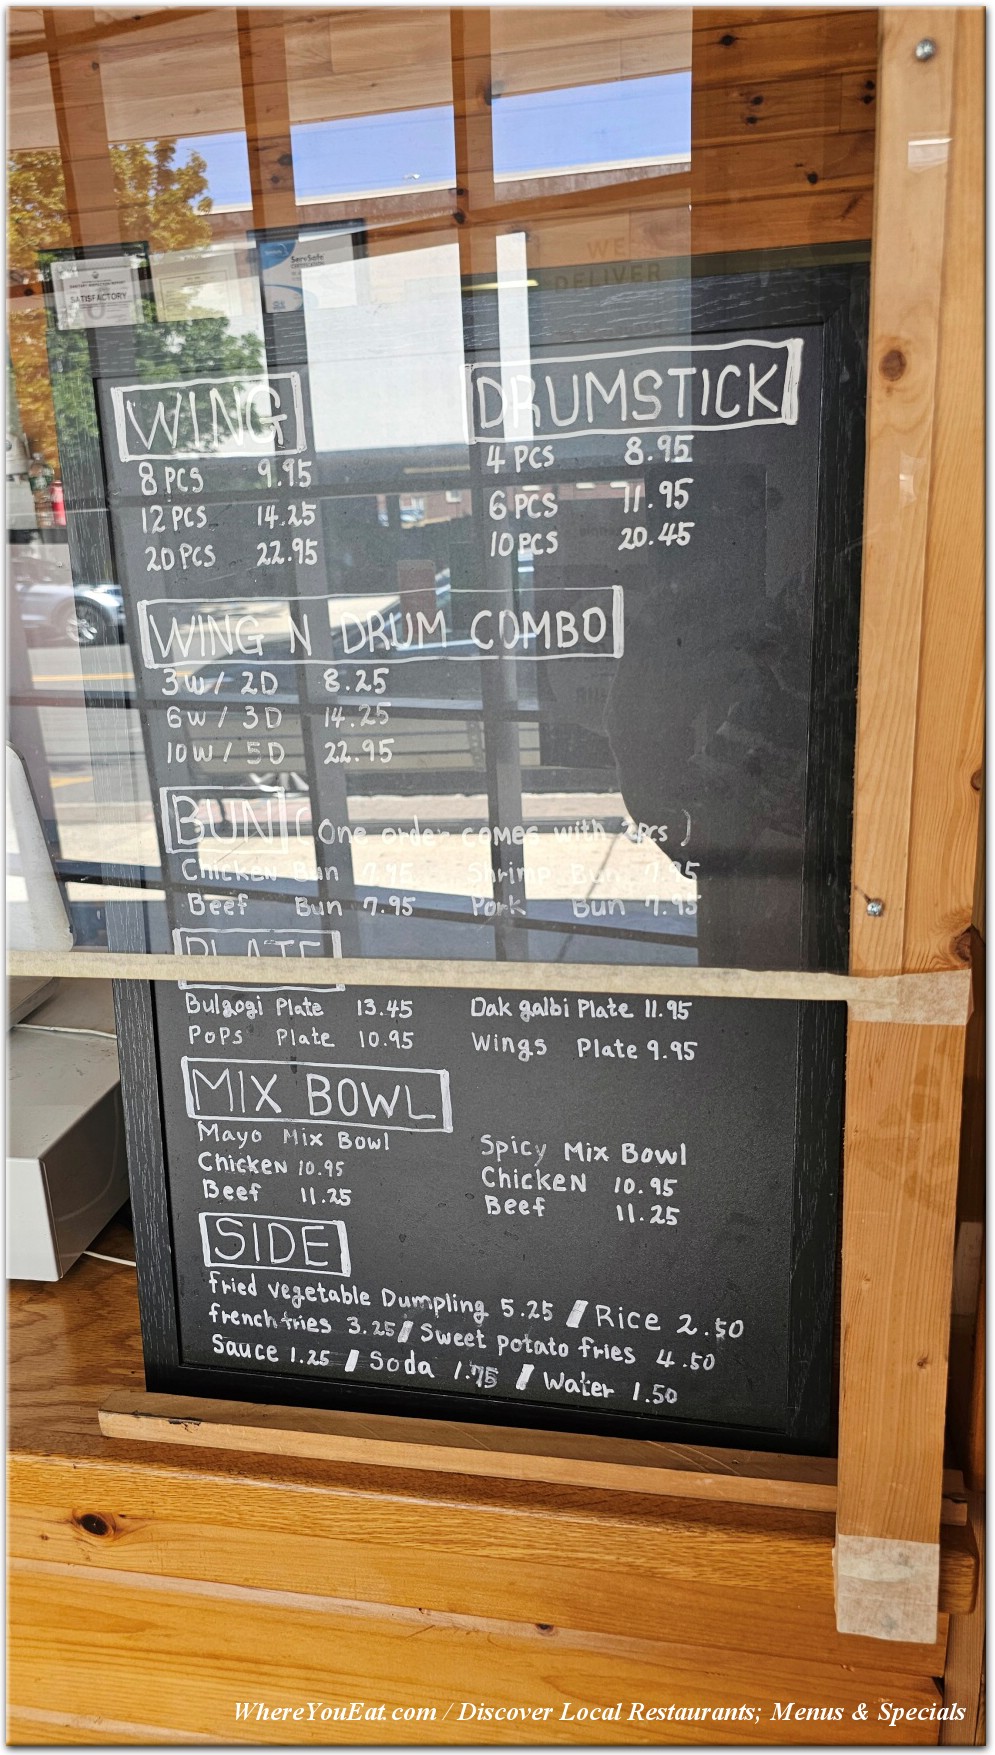 SATISFACTORY
ServSafe
CERTIFICATION
WE
DELIVER
WING
8 PCS 9.95
12 PCS 14.25
20 PCS 22.95
DRUMSTICK
4 PCS 8.95
6 PCS 11.95
10 PCS 20.45
WING N DRUM COMBO
3W / 2D 8.25
6W / 3D 14.25
10W / 5D 22.95
BUN (One order comes with 2pcs)
Chicken Bun 7.95 Shrimp Bun 7.95
Beef Bun 7.95 Pork Bun 7.95
PLATE
Bulgogi Plate 13.45 Dak galbi Plate 11.95
Pops Plate 10.95 Wings Plate 9.95
MIX BOWL
Mayo Mix Bowl
Chicken 10.95
Beef 11.25
Spicy Mix Bowl
Chicken 10.95
Beef 11.25
SIDE
fried vegetable Dumpling 5.25 / Rice 2.50
french fries 3.25 / Sweet potato fries 4.50
Sauce 1.25 / Soda 1.75 / Water 1.50
WhereYouEat.com / Discover Local Restaurants; Menus & Specials